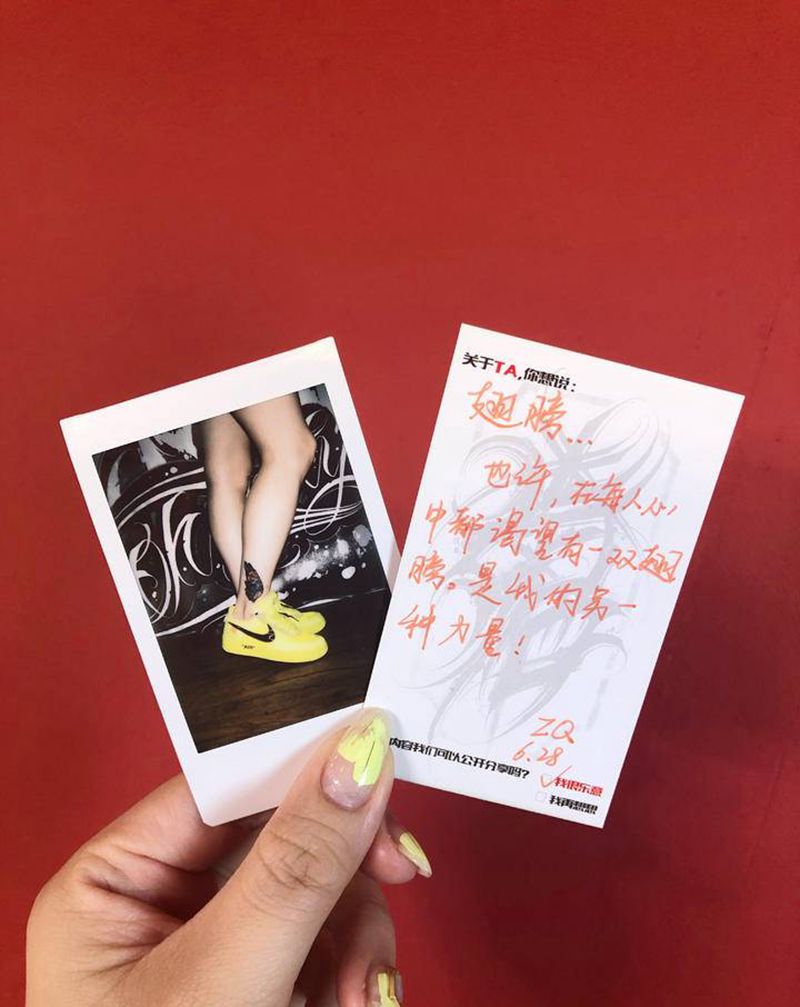 关于TA,你想说:
翅膀...
也许,在每人心
中都渴望有一双翅
膀。是我的另一
种力量!
ZQ
6.28
内容我们可以公开分享吗?
我很乐意
我再想想